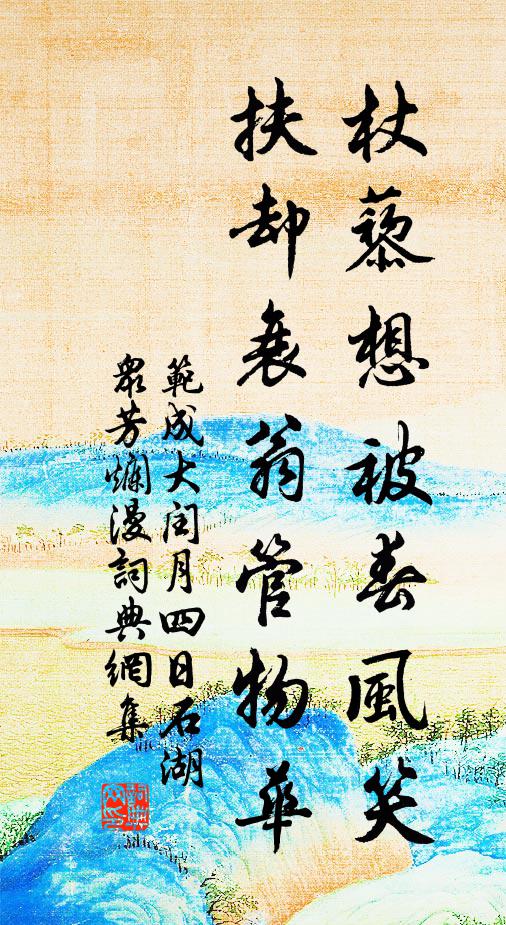 杖藜想被春風笑
扶却衰翁管物華
範成大闰月四日石湖
眾芳爛漫詞典網集